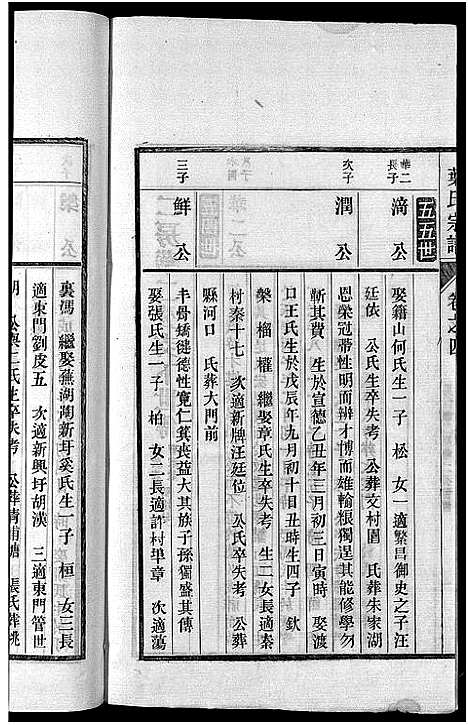 葉氏宗譜
卷之四
五五世
華二長子
滴公
娶籍山何氏生一子 松 女一適繁昌御史之子汪
廷依 公氏生卒失考 公葬文村園 氏葬朱家湖
次子
潤公
恩榮冠帶性明而辨才博而雄輸粮獨逞其能修學勿
斬其費 生於宣德乙丑年三月初三日寅時 娶渡
口王氏生於戊辰年九月初十日丑時生四子 欽
榮 榴 權 繼娶章氏生卒失考 生二女長適秦
村秦十七 次適新牌汪廷位 公氏卒失考 公葬
縣河口 氏葬大門前
三子
鮮公
丰骨矯健德性寬仁箕裘益大其族子孫獨盛其傳
娶張氏生一子 柏 女二長適許村埠章 次適蕩
裏馮 繼娶蕪湖湖新耳奚氏生一子 桓 女三長
適東門劉皮五 次適新興圩胡漢 三適東門管世